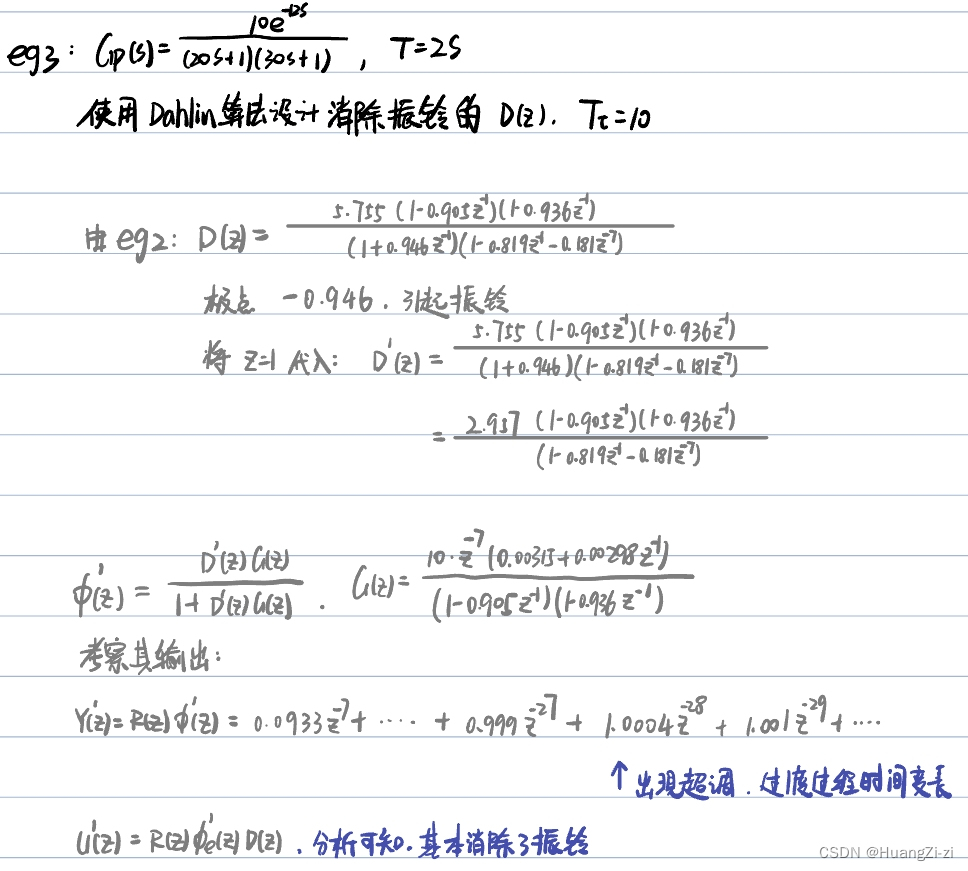 eg3: Gp(s)= 10e^{-12s} / (20s+1)(30s+1) , T=2s
使用Dahlin算法设计消除振铃的 D(z). Tτ=10
由 eg2: D(z)= 5.755 (1-0.905z^{-1})(1-0.936z^{-1}) / (1+0.946z^{-1})(1-0.819z^{-1}-0.181z^{-7})
极点 -0.946. 引起振铃
将 z=1 代入: D'(z) = 5.755 (1-0.905z^{-1})(1-0.936z^{-1}) / (1+0.946)(1-0.819z^{-1}-0.181z^{-7})
= 2.957 (1-0.905z^{-1})(1-0.936z^{-1}) / (1-0.819z^{-1}-0.181z^{-7})
ϕ'(z) = D'(z)G(z) / 1+D'(z)G(z) . G(z)= 10·z^{-7}(0.00315+0.00298z^{-1}) / (1-0.905z^{-1})(1-0.936z^{-1})
考察其输出:
Y'(z)=R(z)ϕ'(z) = 0.0933z^{-7}+ ···· + 0.999z^{-27} + 1.0004z^{-28} + 1.001z^{-29} + ····
↑出现超调. 过度过程时间变长
U'(z) = R(z)ϕ'e(z)D(z) . 分析可知. 基本消除了振铃
CSDN @HuangZi-zi